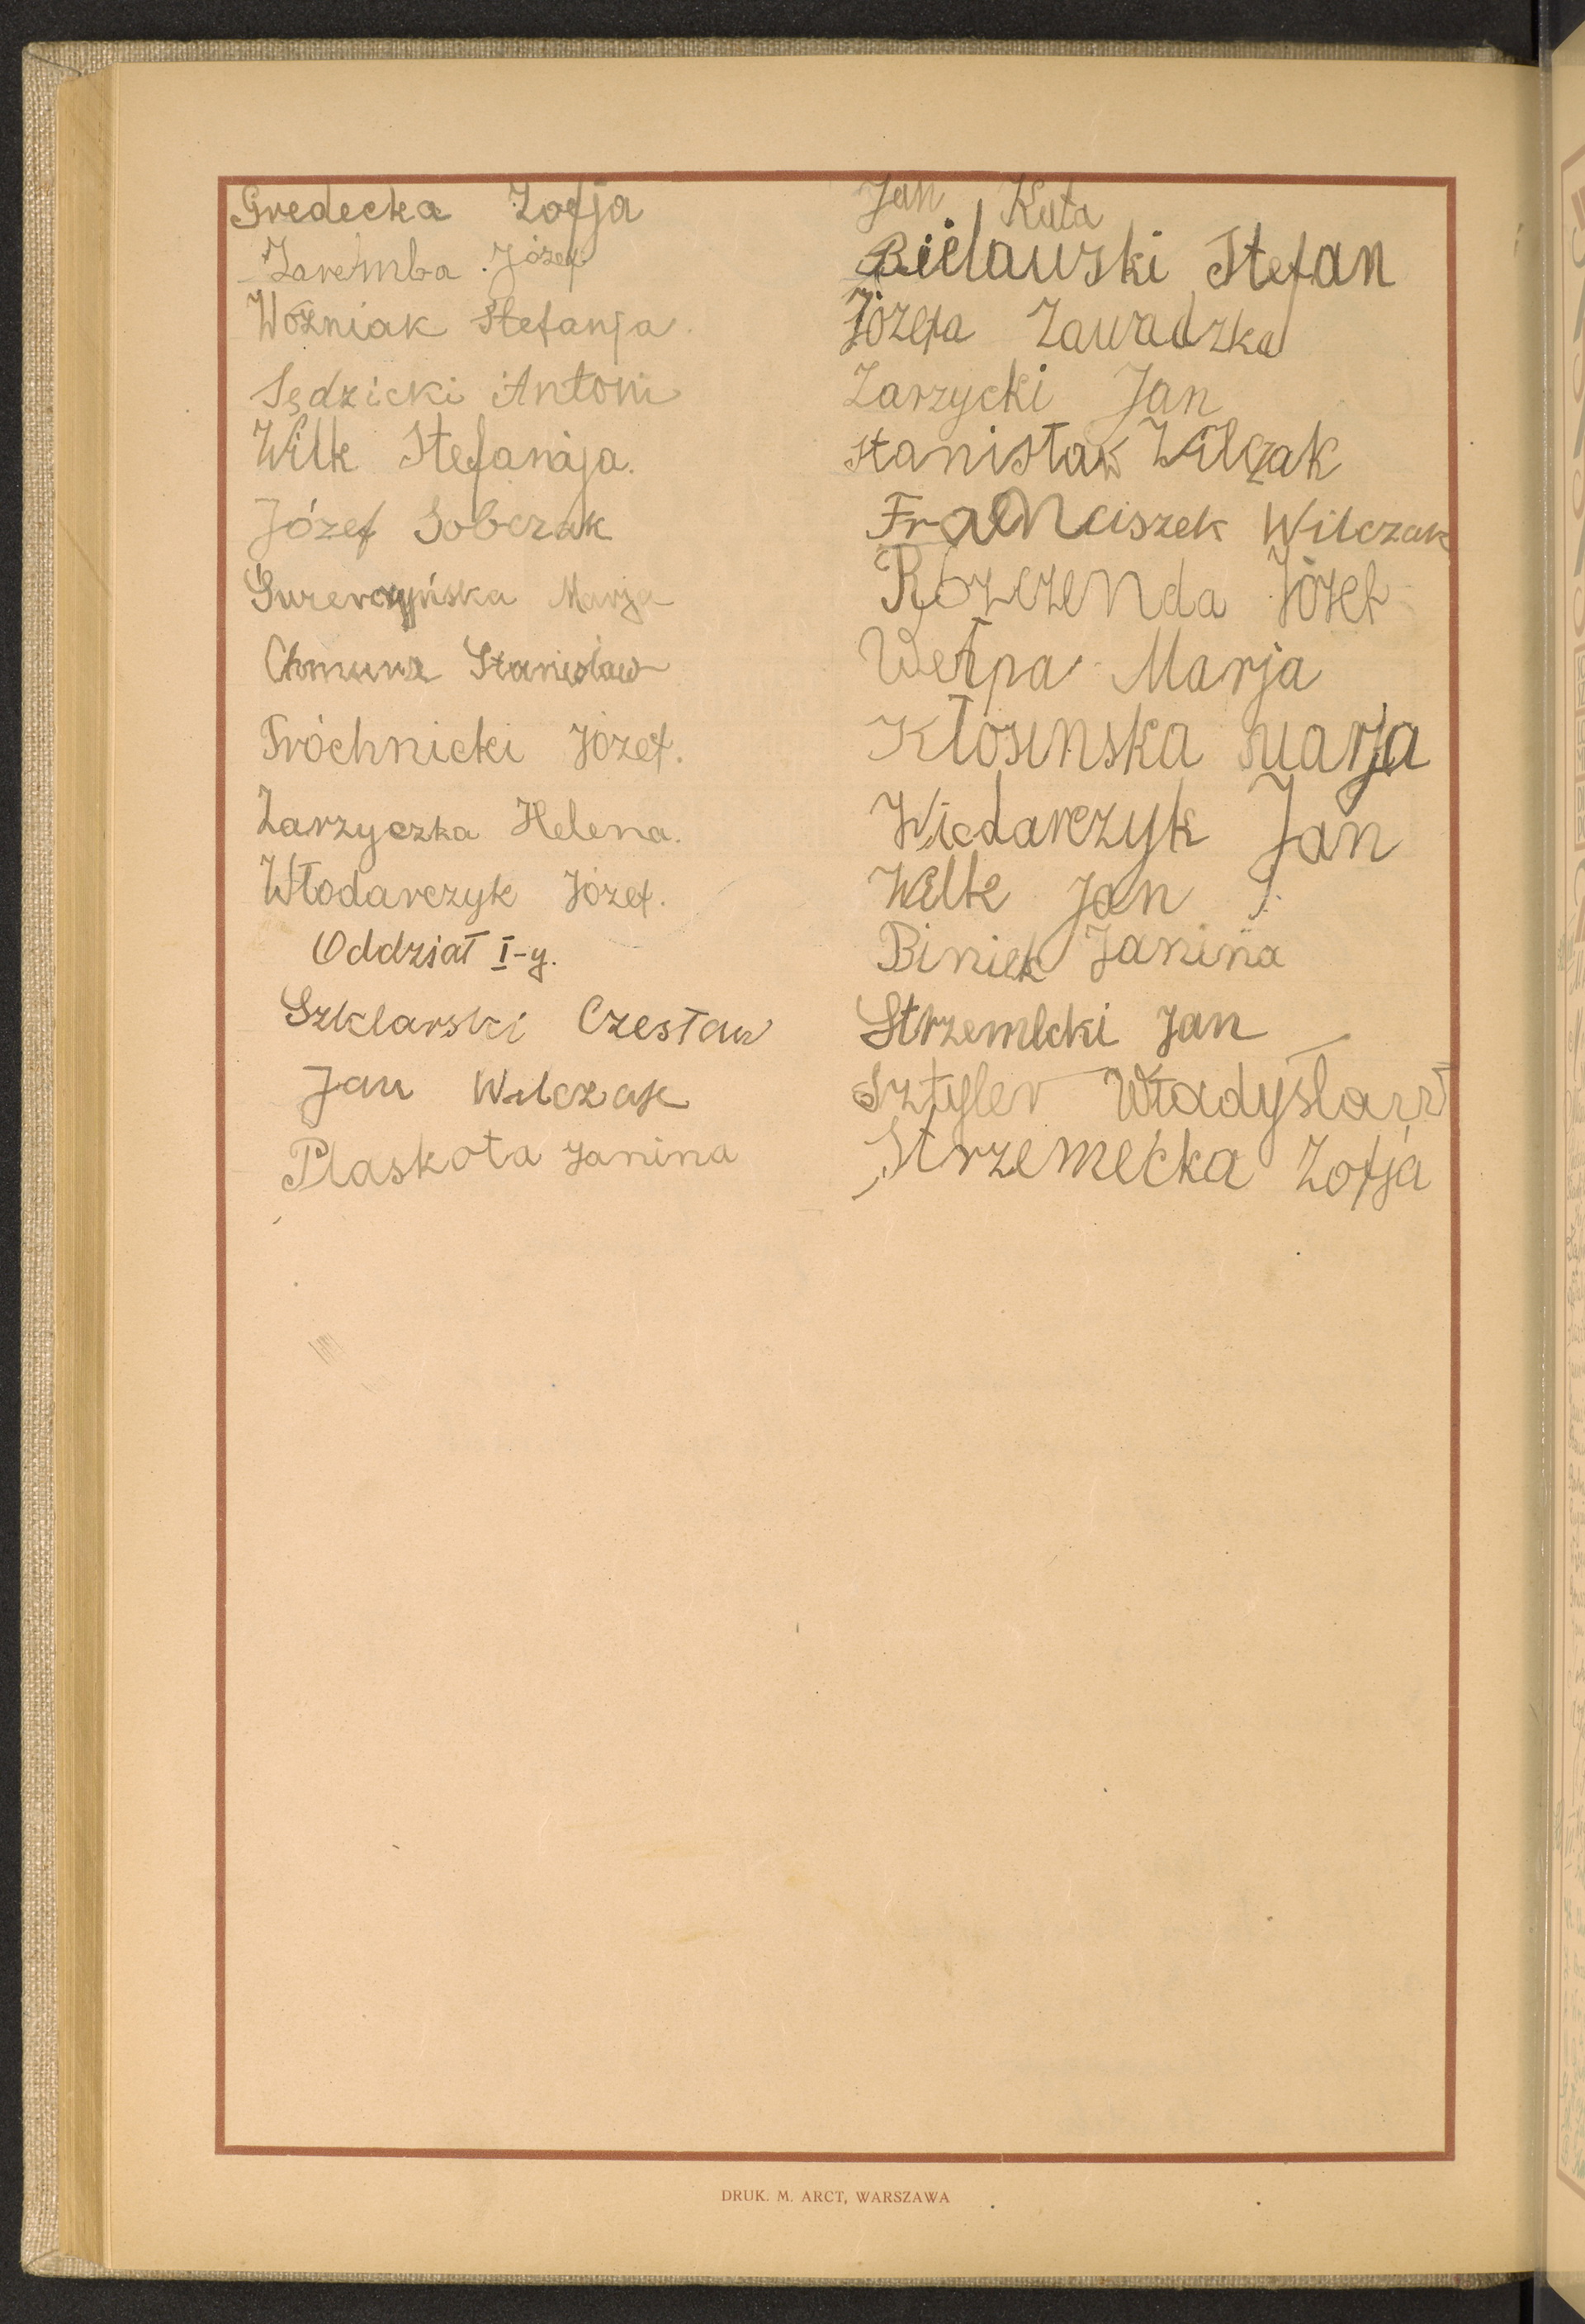 Gredecka Zofja
Zaremba Józef
Woźniak Stefanja.
Sędzicki Antoni
Wilk Stefanja.
Józef Sobczak
Marja
Chmura Stanisław
Próchnicki Józef.
Zarzyczka Helena.
Włodarczyk Józef.
Oddział I-y.
Szklarski Czesław
Jan Wilczak
Plaskota Janina
Jan Kuta
Bielawski Stefan
Józefa Zawadzka
Zarzycki Jan
Stanisław Wilczak
Franciszek Wilczak
Rozczenda Józef
Wełpa Marja
Kłosinska Marja
Wiedarczyk Jan
Wilk Jan
Biniek Janina
Strzemecki Jan
Sztygler Władysław
Strzemecka Zofja
DRUK. M. ARCT, WARSZAWA